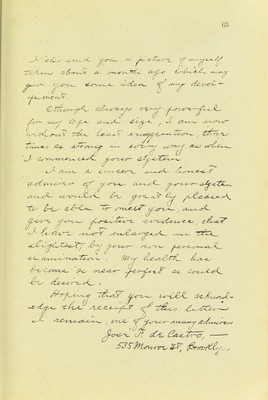 63
I also send you a picture of myself
taken about a month ago which may
give you some idea of my devel-
opment.
Though always very powerful
for my age and size, I am now
without the least exaggeration, three
times as strong in every way as when
I commenced your system.
I am a sincere and honest
admirer of you and your system
and would be greatly pleased
to be able to meet you, and
give you positive evidence, that
I have not enlarged in the
slightest, by your own personal
examination. My health has
become as near perfect as could
be desired.
Hoping that you will acknowl-
edge the receipt of this letter
I remain, one of your many admirers
José F. de Castro, —
535 Monroe St, Brooklyn.